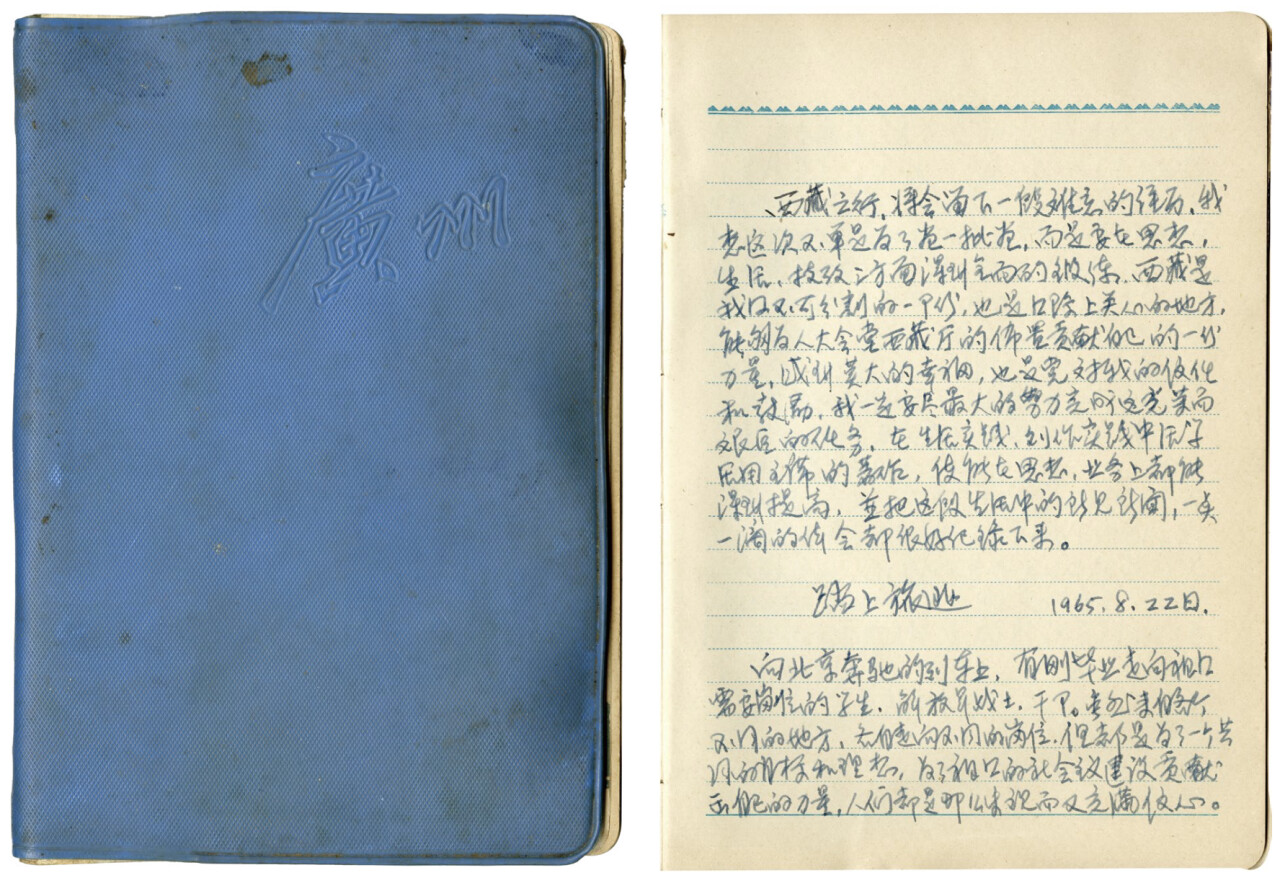 廣州
西藏之行，将会留下一段难忘的经历，我
想这次不单是为了卷一批卷，而是要在思想，
生活、技政三方面得到全面的锻炼。西藏是
我国不可分割的一部分，也是国际上关心的地方，
能够为人大会堂西藏厅的佈置贡献自己的一份
力量，感到莫大的幸福，也是党对我的信任
和鼓励，我一定要尽最大的努力完成这光荣而
艰巨的任务，在生活实践、创作实践中活学
活用主席的著作，使能在思想，业务上都能
得到提高，並把这段生活中的所见所闻，一点
一滴的体会都很好记录下来。
踏上旅途 1965.8.22日.
向北京奔驰的列车上，有刚毕业走向祖国
需要岗位的学生，解放军战士，干部。
不同的地方，各自走向不同的岗位，但都是为了一个共
同的目标和理想，为了祖国的社会主义建设贡献
自己的力量，人们都是那么乐观而又充满信心。